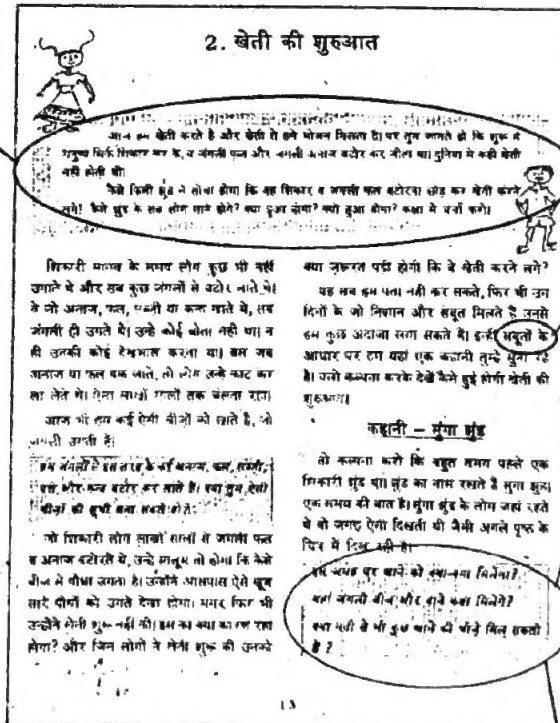 2. खेती की शुरुआत
आज हम खेती करते हैं और खेती से हमें भोजन मिलता है। पर तुम जानते हो कि शुरू में
मनुष्य सिर्फ शिकार कर के, व जंगली फल और जंगली अनाज बटोर कर जीता था। दुनिया में कहीं खेती
नहीं होती थी।
कैसे किसी झुंड ने सोचा होगा कि वह शिकार व जंगली फल बटोरना छोड़ कर खेती करने
लगे! कैसे झुंड के सब लोग माने होंगे? क्या हुआ होगा? क्यों हुआ होगा? कक्षा में चर्चा करो।
शिकारी मानव के समय लोग कुछ भी नहीं
उगाते थे और सब कुछ जंगलों से बटोर लाते थे।
वे जो अनाज, फल, सब्ज़ी या कन्द खाते थे, सब
जंगली ही उगते थे। उन्हें कोई बोता नहीं था। न
ही उनकी कोई देखभाल करता था। बस जब
अनाज या फल पक जाते, तो लोग उन्हें काट कर
ला लेते थे। ऐसा लाखों सालों तक चलता रहा।
आज भी हम कई ऐसी चीज़ों को खाते हैं, जो
जंगली उगती हैं।
हम जंगलों से इस तरह के कई अनाज, फल, सब्ज़ी,
पत्ते, और कन्द बटोर कर लाते हैं। क्या तुम ऐसी
चीज़ों की सूची बना सकते हो?
जो शिकारी लोग लाखों सालों से जंगली फल
व अनाज बटोरते थे, उन्हें मालूम तो होगा कि कैसे
बीज से पौधा उगता है। उन्होंने आसपास ऐसे खूब
सारे पौधों को उगते देखा होगा। मगर फिर भी
उन्होंने खेती शुरू नहीं की। इस का क्या कारण रहा
होगा? और जिन लोगों ने खेती शुरू की उनको
क्या ज़रूरत पड़ी होगी कि वे खेती करने लगे?
यह सब हम पता नहीं कर सकते, फिर भी उन
दिनों के जो निशान और सबूत मिलते हैं उनसे
हम कुछ अंदाज़ा लगा सकते हैं। इन्हीं सबूतों के
आधार पर हम यहां एक कहानी तुम्हें सुना रहे
हैं। चलो कल्पना करके देखें कैसे हुई होगी खेती की
शुरुआत।
कहानी – मुंगा झुंड
तो कल्पना करो कि बहुत समय पहले एक
शिकारी झुंड था। झुंड का नाम रखते हैं मुंगा झुंड।
एक समय की बात है। मुंगा झुंड के लोग जहां रहते
थे वो जगह ऐसी दिखती थी जैसी अगले पृष्ठ के
चित्र में दिख रही है।
इस जगह पर खाने को क्या-क्या मिलेगा?
यहां जंगली बीज और दाने कहां मिलेंगे?
क्या नदी से भी कुछ खाने की चीज़ें मिल सकती
हैं?
13